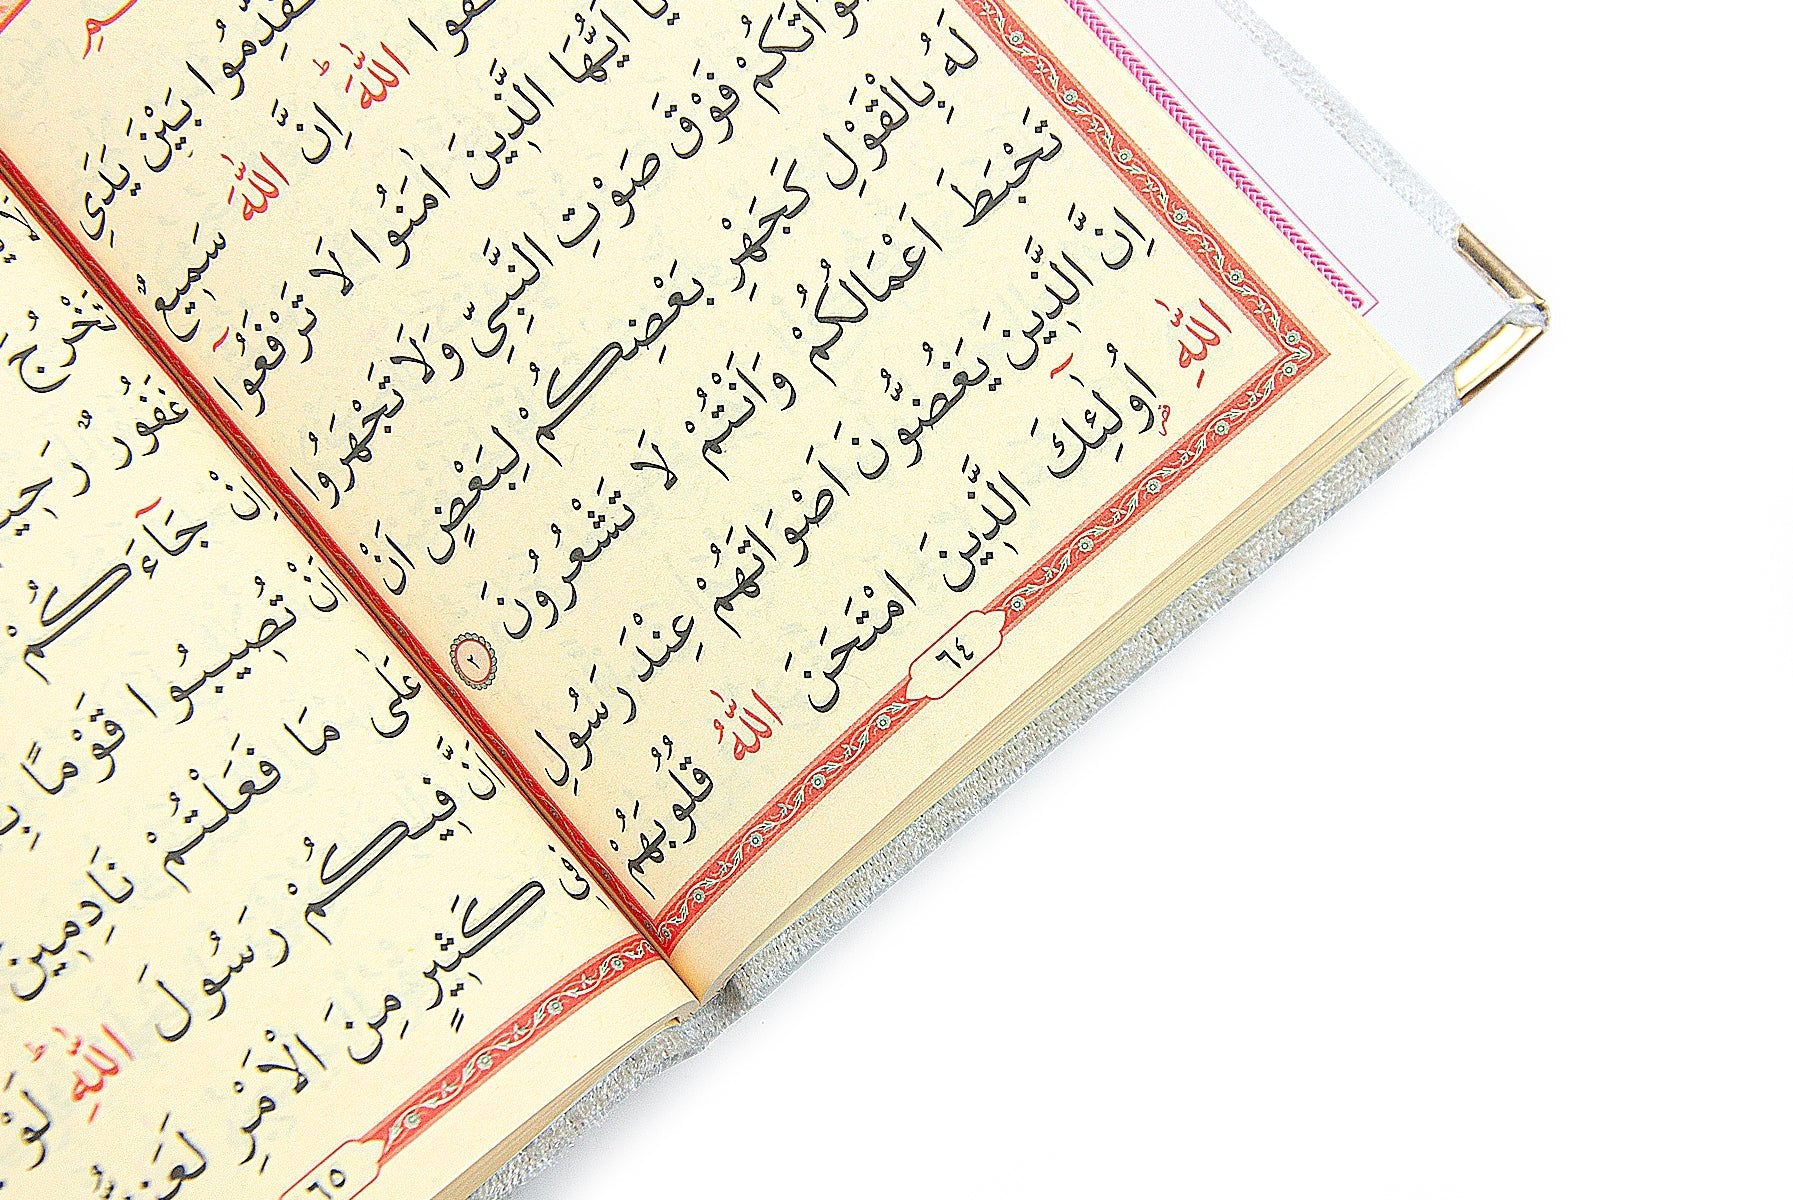 تُقَدِّمُوا بَيْنَ يَدَيِ
اللّٰهَ اِنَّ اللّٰهَ سَمِيعٌ
يَا اَيُّهَا الَّذِينَ اٰمَنُوا لَا تَرْفَعُٓوا
فَوْقَ صَوْتِ النَّبِيِّ وَلَا تَجْهَرُوا
لَهُ بِالْقَوْلِ كَجَهْرِ بَعْضِكُمْ لِبَعْضٍ اَنْ
تَحْبَطَ اَعْمَالُكُمْ وَاَنْتُمْ لَا تَشْعُرُونَ ٢
اِنَّ الَّذِينَ يَغُضُّونَ اَصْوَاتَهُمْ عِنْدَ رَسُولِ
اللّٰهِ اُولٰٓئِكَ الَّذِينَ امْتَحَنَ اللّٰهُ قُلُوبَهُمْ
٦٤
تَخْرُجَ
غَفُورٌ
اِنْ جَٓاءَكُمْ
اَنْ تُصِيبُوا قَوْمًا
عَلٰى مَا فَعَلْتُمْ نَادِمِينَ
اَنَّ فِيكُمْ رَسُولَ اللّٰهِ لَوْ
فِى كَثِيرٍ مِنَ الْاَمْرِ
٦٥